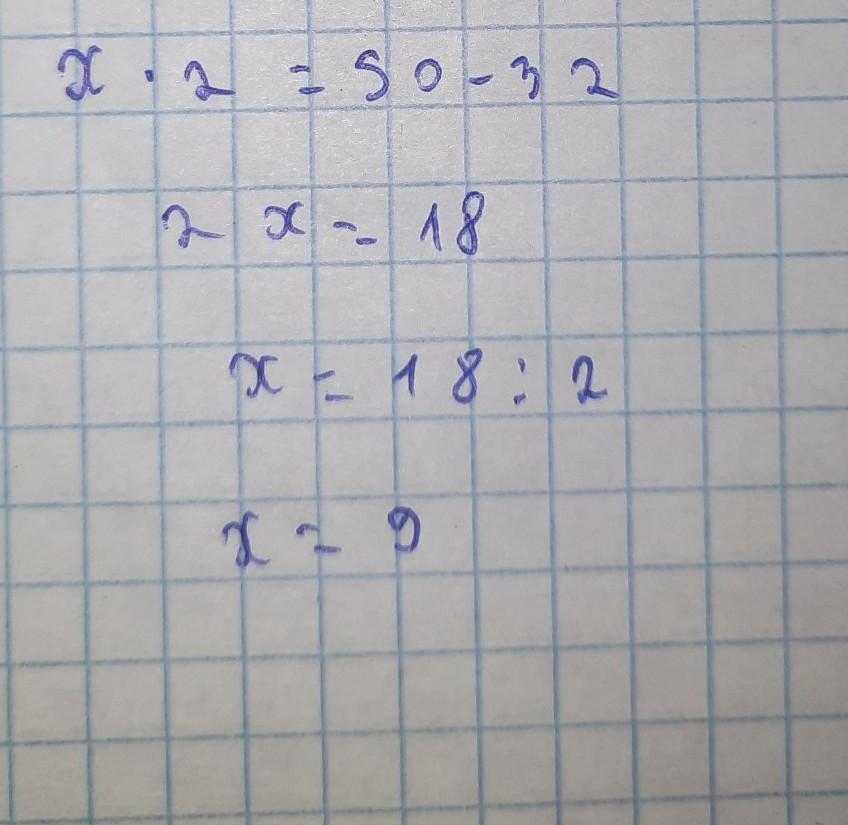 x · 2 = 50 - 32
2x = 18
x = 18 : 2
x = 9